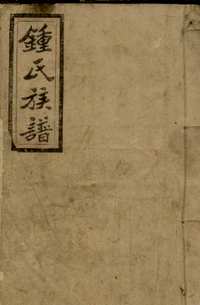 鍾氏族譜